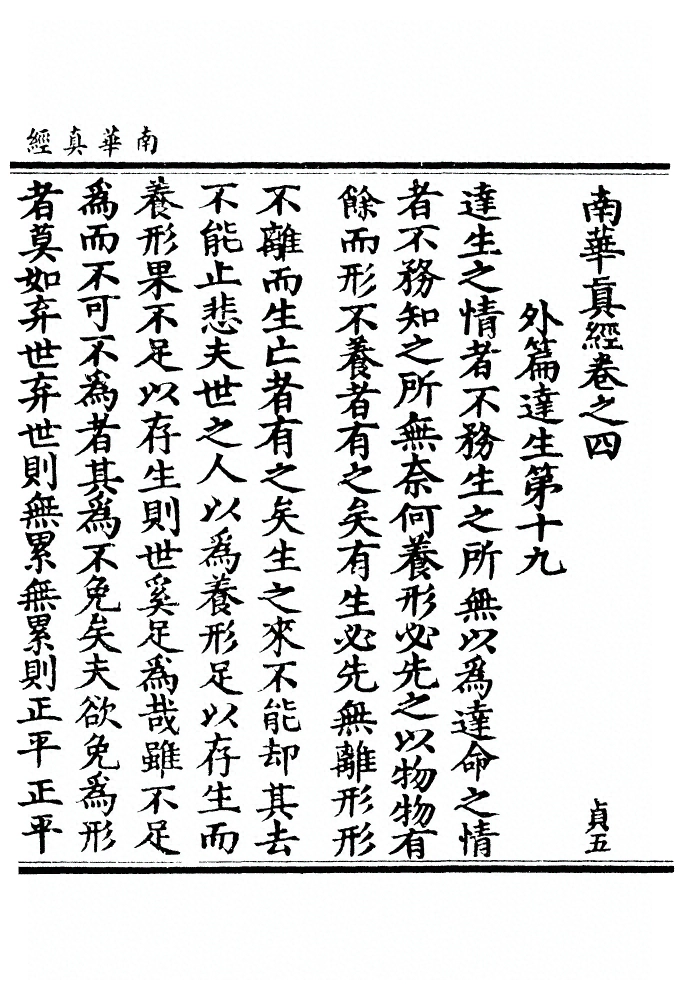 南華真經
南華真經卷之四
貞五
外篇達生第十九
達生之情者不務生之所無以為達命之情
者不務知之所無奈何養形必先之以物物有
餘而形不養者有之矣有生必先無離形形
不離而生亡者有之矣生之來不能却其去
不能止悲夫世之人以為養形足以存生而
養形果不足以存生則世奚足為哉雖不足
為而不可不為者其為不免矣夫欲免為形
者莫如弃世弃世則無累無累則正平正平